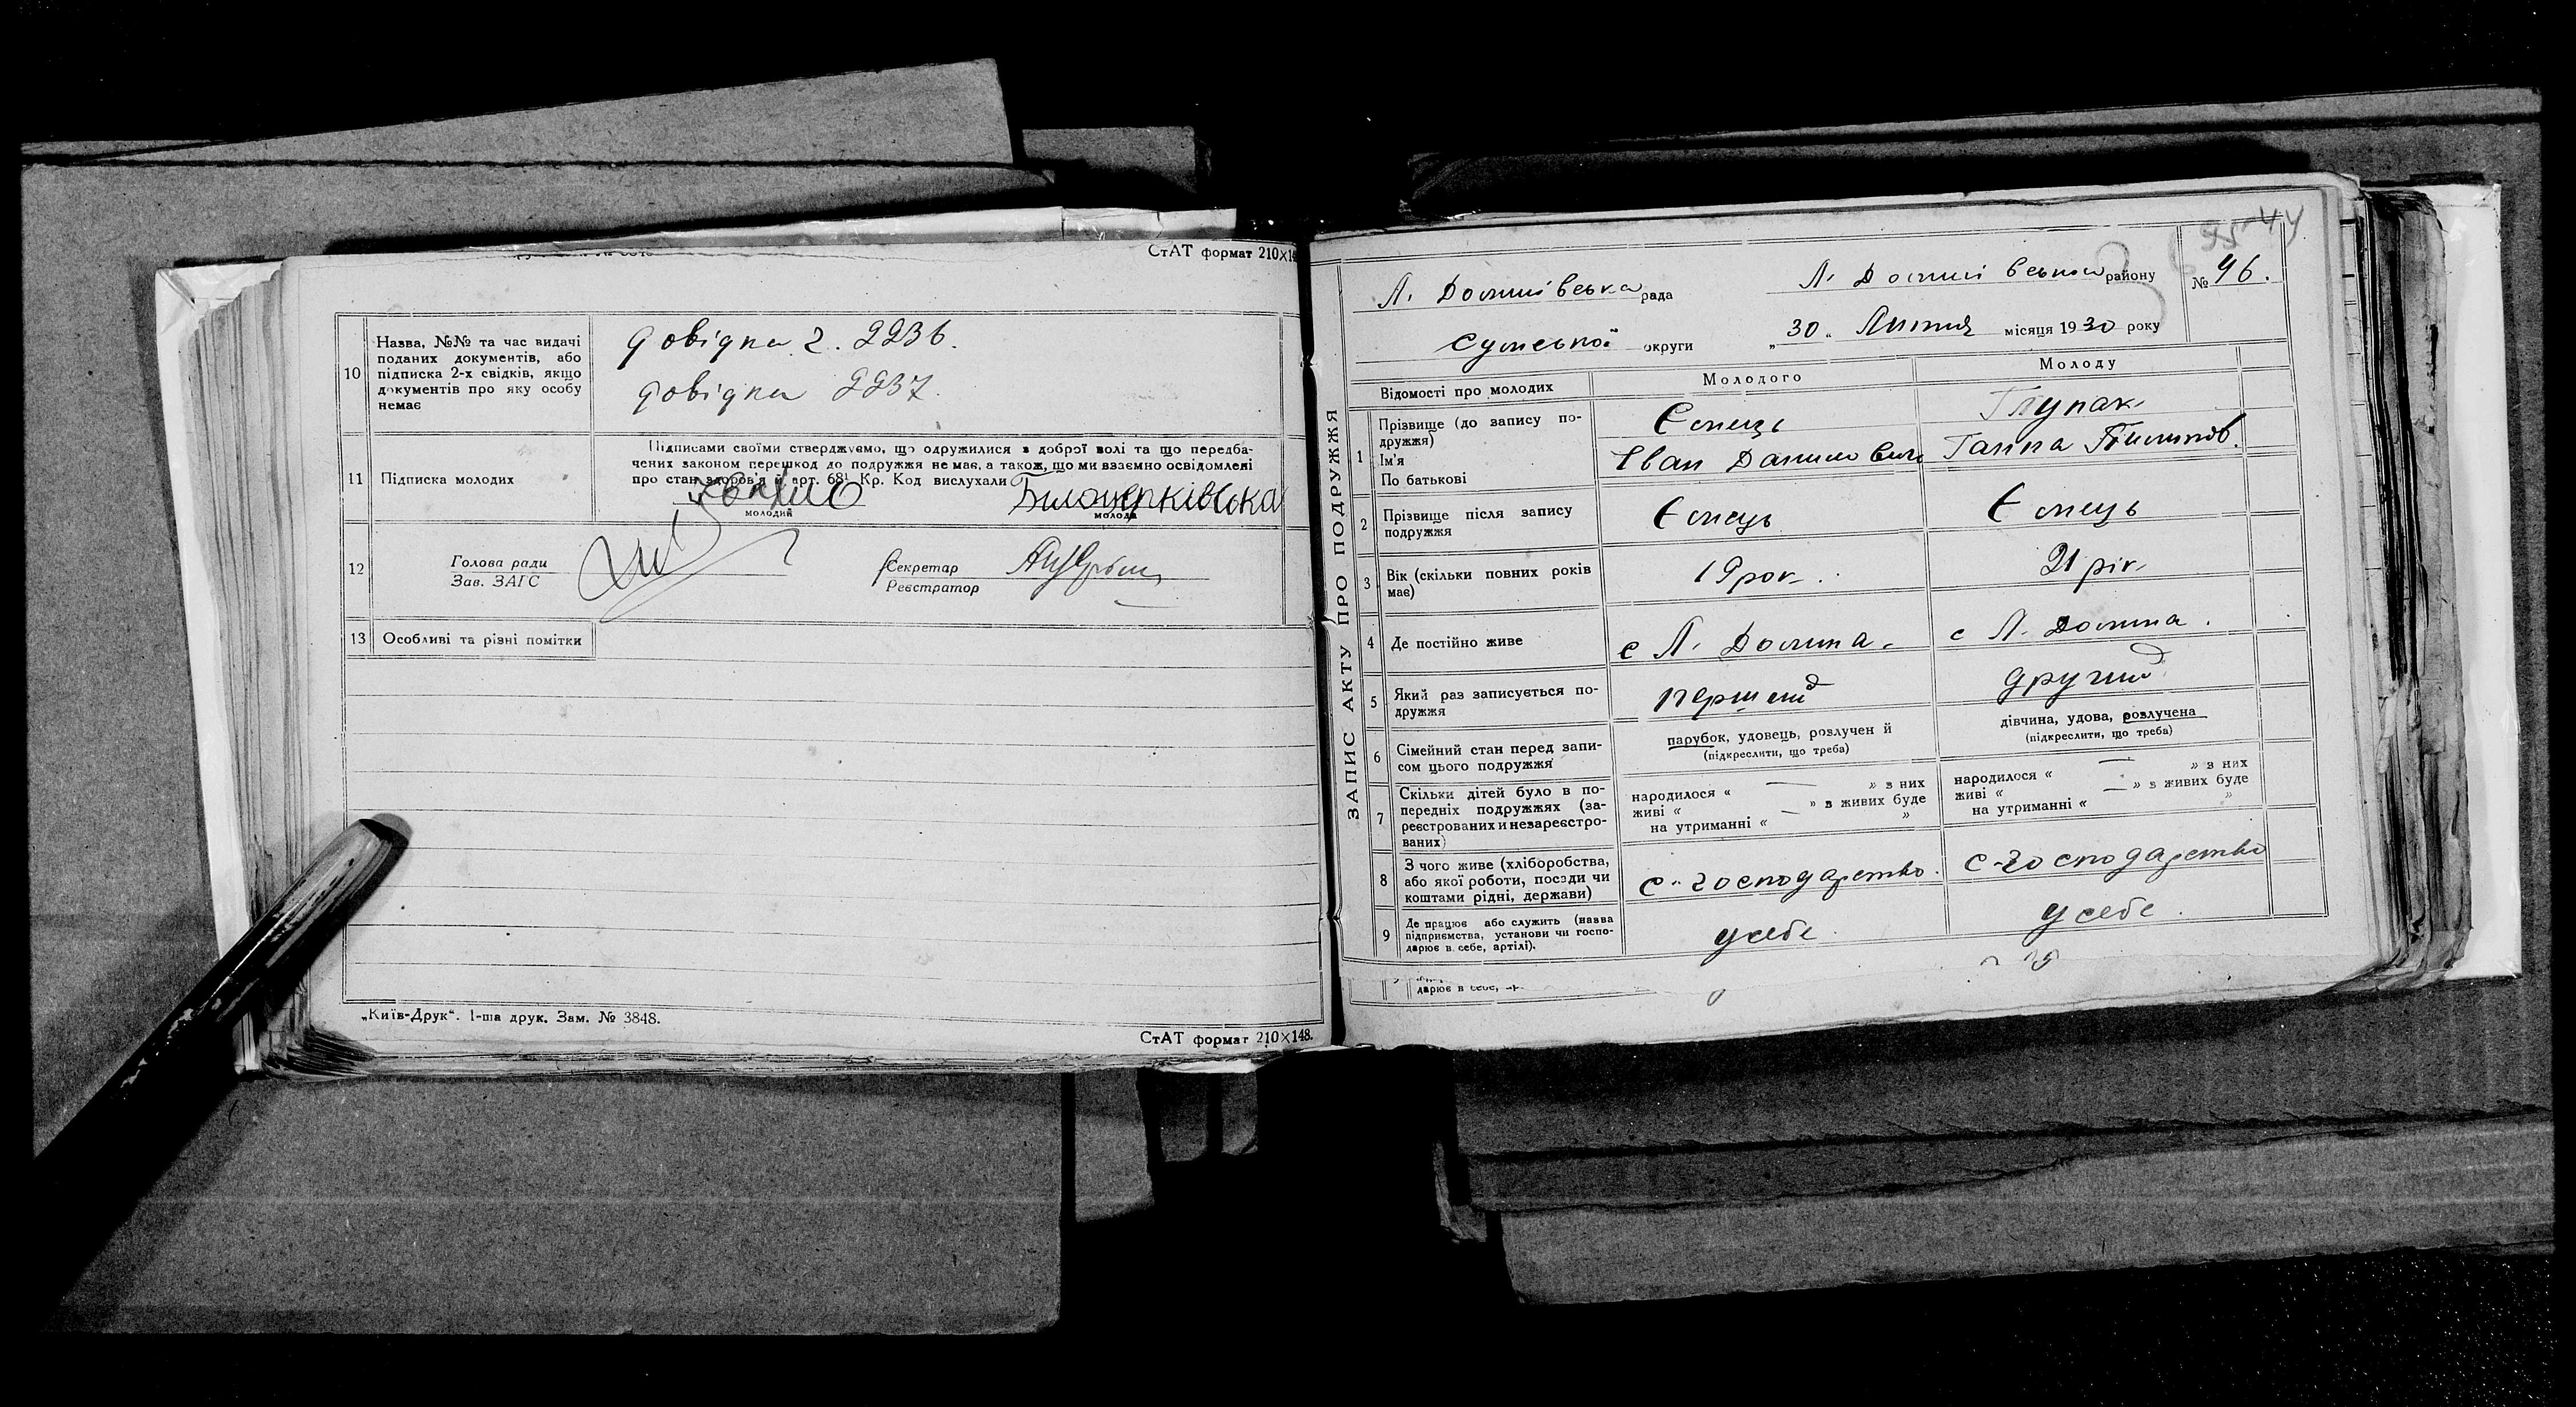 СтАТ формат 210×14
10 Назва, №№ та час видачі
поданих документів, або
підписка 2-х свідків, якщо
документів про яку особу
немає
довідка 2. 2236.
довідка 2237.
11 Підписка молодих
Підписами своїми стверджуємо, що одружилися з доброї волі та що передба-
чених законом перешкод до подружжя немає, а також, що ми взаємно освідомлені
про стан здоров'я й арт. 68¹ Кр. Код вислухали
Білоцерківська
молодий
молода
12 Голова ради
Зав. ЗАГС
Секретар
Реєстратор
13 Особливі та різні помітки
„Київ-Друк“. 1-ша друк. Зам. № 3848.
СтАТ формат 210×148.
ЗАПИС АКТУ ПРО ПОДРУЖЖЯ
Л. Долинівська рада
Л. Долинівського району
№ 46.
Сумської округи
„30„ Липня місяця 1930 року
Відомості про молодих
Молодого
Молоду
1 Прізвище (до запису по-
дружжя)
Ім'я
По батькові
Ємець
Іван Данилович
Глупак
Ганна Пилипов.
2 Прізвище після запису
подружжя
Ємець
Ємець
3 Вік (скільки повних років
має)
19 рок.
21 рік
4 Де постійно живе
с Л. Долина.
с Л. Долина.
5 Який раз записується по-
дружжя
перший
другий
6 Сімейний стан перед запи-
сом цього подружжя
парубок, удовець, розлучен й
(підкреслити, що треба)
дівчина, удова, розлучена
(підкреслити, що треба)
7 Скільки дітей було в по-
передніх подружжях (за-
реєстрованих и незареєстро-
ваних)
народилося « — » з них
живі « — » з живих буде
на утриманні « »
народилося « — » з них
живі « — » з живих буде
на утриманні « »
8 З чого живе (хліборобства,
або якої роботи, посади чи
коштами рідні, держави)
с-господарство.
с-господарство
9 Де працює або служить (назва
підприємства, установи чи госпо-
дарює в себе, артілі).
у себе.
у себе.
дарює в себе,